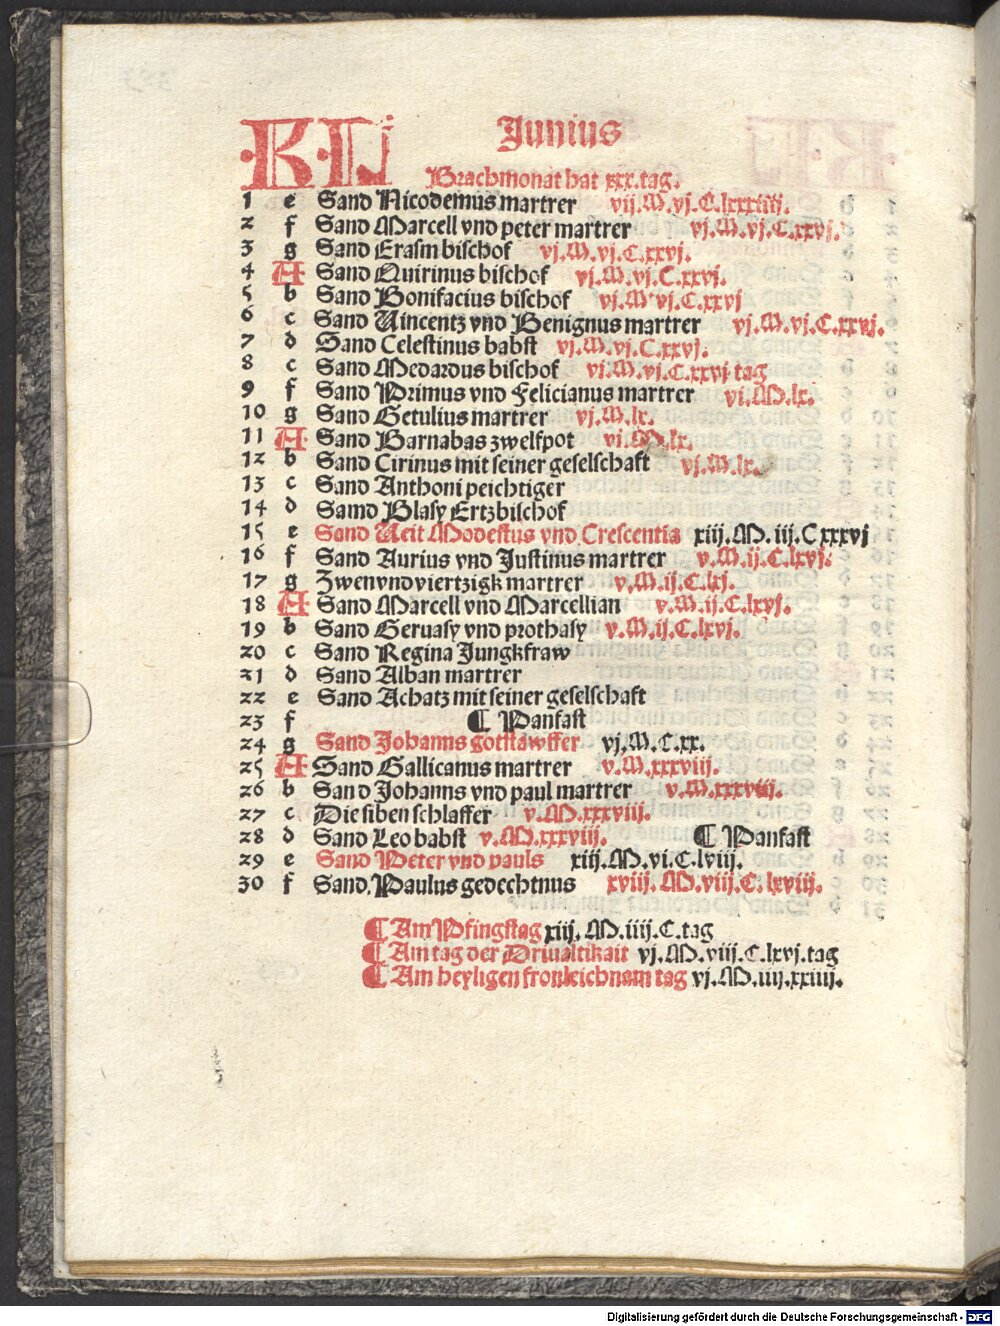 KL Junius
Brachmonat hat xxx.tag.
1 e Sand Nicodemus martrer vij.M.vj.C.lxxxiiij.
2 f Sand Marcell vnd peter martrer vj.M.vj.C.xxvj.
3 g Sand Erasm bischof vj.M.vj.C.xxvj.
4 A Sand Quirinus bischof vj.M.vj.C.xxvj.
5 b Sand Bonifacius bischof vj.M.vj.C.xxvj
6 c Sand Vincentz vnd Benignus martrer vj.M.vj.C.xxvj.
7 d Sand Celestinus babst vj.M.vj.C.xxvj.
8 c Sand Medardus bischof vj.M.vj.C.xxvj tag
9 f Sand Primus vnd Felicianus martrer vj.M.lx.
10 g Sand Getulius martrer vj.M.lx.
11 A Sand Barnabas zwelfpot vj.M.lx.
12 b Sand Cirinus mit seiner geselschaft vj.M.lx.
13 c Sand Anthoni peichtiger
14 d Samd Blasy Ertzbischof
15 e Sand Veit Modestus vnd Crescentia xiij.M.iij.Cxxxvj
16 f Sand Aurius vnd Justinus martrer v.M.ij.C.lxvj.
17 g Zwenvndviertzigk martrer v.M.ij.C.lxj.
18 A Sand Marcell vnd Marcellian v.M.ij.C.lxvj.
19 b Sand Geruasy vnd prothasy v.M.ij.C.lxvj.
20 c Sand Regina Jungkfraw
21 d Sand Alban martrer
22 e Sand Achatz mit seiner geselschaft
23 f ¶ Panfast
24 g Sand Johanns gotstawffer vj.M.C.xx.
25 A Sand Gallicanus martrer v.M.xxxviij.
26 b Sand Johanns vnd paul martrer v.M.xxxviij.
27 c Die siben schlaffer v.M.xxxviij.
28 d Sand Leo babst v.M.xxxviij. ¶ Panfast
29 e Sand Peter vnd pauls xiij.M.vi.C.lviij.
30 f Sand Paulus gedechtnus xviij.M.viij.C.lxviij.
¶ Am Pfingstag xiij.M.iiij.C.tag
¶ Am tag der Driualtikait vj.M.viij.C.lxvj.tag
¶ Am heyligen fronleichnam tag vj.M.iiij.xxiiij.
Digitalisierung gefördert durch die Deutsche Forschungsgemeinschaft - DFG